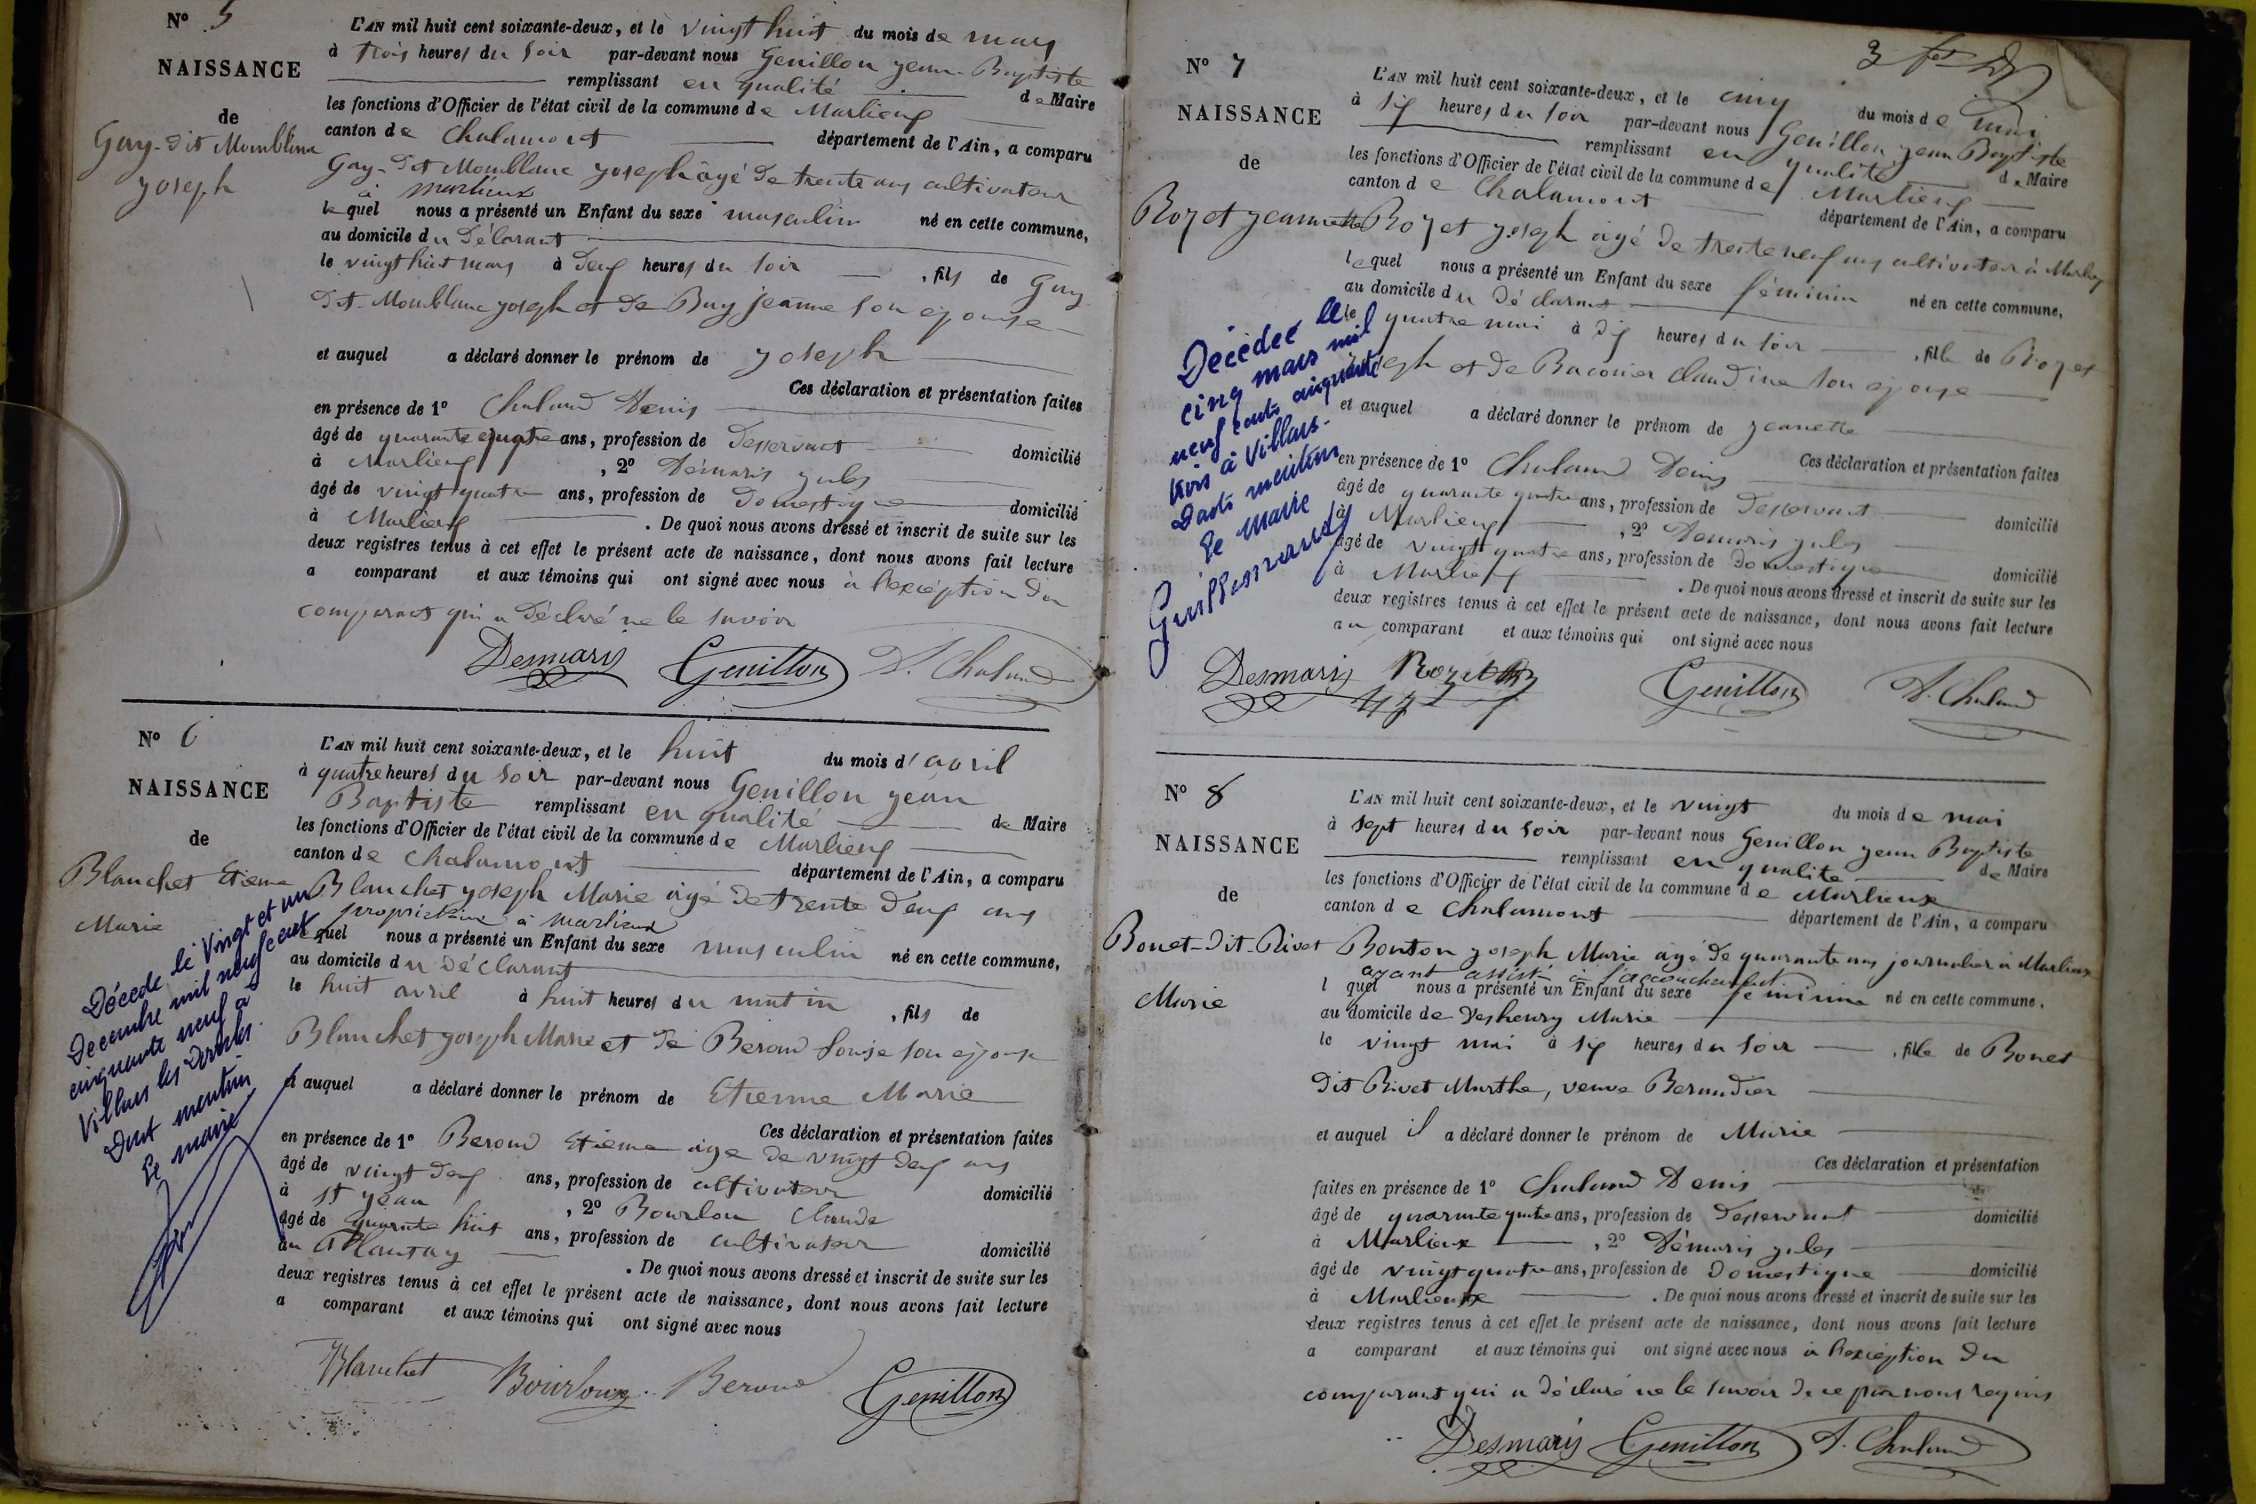 N° 5
NAISSANCE
de
Gay-dit Momblanc
Joseph
L'AN mil huit cent soixante-deux, et le vingt huit du mois de mars
à trois heures du soir par-devant nous Genillon jean-Baptiste
remplissant en qualité de Maire
les fonctions d'Officier de l'état civil de la commune de Marlieux
canton de Chalamont département de l'Ain, a comparu
Gay-dit Momblanc joseph âgé de trente ans cultivateur
à marlieux
lequel nous a présenté un Enfant du sexe masculin né en cette commune,
au domicile du Déclarant
le vingt huit mars à deux heures du soir, fils de Gay
dit-Momblanc joseph et de Buy jeanne son épouse
et auquel a déclaré donner le prénom de joseph
Ces déclaration et présentation faites
en présence de 1° Chaland Denis
âgé de quarante quatre ans, profession de Desservant domicilié
à Marlieux, 2° Démaris jules
âgé de vingt quatre ans, profession de Domestique domicilié
à Marlieux. De quoi nous avons dressé et inscrit de suite sur les
deux registres tenus à cet effet le présent acte de naissance, dont nous avons fait lecture
a comparant et aux témoins qui ont signé avec nous à l'exception du
comparant qui a déclaré ne le savoir
Desmaris Genillon D. Chaland
N° 6
NAISSANCE
de
Blanchet Etienne
Marie
Décédé le vingt et un
Decembre mil neuf cent
cinquante neuf à
Villars les Dombes.
Dont mention
Le maire
L'AN mil huit cent soixante-deux, et le huit du mois d'avril
à quatre heures du soir par-devant nous Genillon jean
Baptiste remplissant en qualité de Maire
les fonctions d'Officier de l'état civil de la commune de Marlieux
canton de Chalamont département de l'Ain, a comparu
Blanchet joseph Marie âgé de trente deux ans
propriétaire à marlieux
lequel nous a présenté un Enfant du sexe masculin né en cette commune,
au domicile du déclarant
le huit avril à huit heures du matin, fils de
Blanchet joseph Marie et de Beroud Louise son épouse
et auquel a déclaré donner le prénom de Etienne Marie
Ces déclaration et présentation faites
en présence de 1° Beroud Etienne âgé de vingt deux ans
âgé de vingt deux ans, profession de cultivateur domicilié
à St jean, 2° Bourlon Claude
âgé de quarante huit ans, profession de cultivateur domicilié
au Plantay. De quoi nous avons dressé et inscrit de suite sur les
deux registres tenus à cet effet le présent acte de naissance, dont nous avons fait lecture
a comparant et aux témoins qui ont signé avec nous
Blanchet Bourlon Beroud Genillon
3
N° 7
NAISSANCE
de
Rozet jeannette
Décédée le
cinq mars mil
neuf cent cinquante
trois à Villars.
Dont mention
Le Maire
L'AN mil huit cent soixante-deux, et le cinq du mois de mai
à six heures du soir par-devant nous Genillon jean Baptiste
remplissant en qualité de Maire
les fonctions d'Officier de l'état civil de la commune de Marlieux
canton de Chalamont département de l'Ain, a comparu
Rozet joseph âgé de trente neuf ans cultivateur à Marlieux
lequel nous a présenté un Enfant du sexe féminin né en cette commune,
au domicile du déclarant
le quatre mai à dix heures du soir, fille de Rozet
joseph et de Baconier claudine son épouse
et auquel a déclaré donner le prénom de jeanette
Ces déclaration et présentation faites
en présence de 1° Chaland Denis
âgé de quarante quatre ans, profession de Desservant domicilié
à Marlieux, 2° Demaris jules
âgé de vingt quatre ans, profession de Domestique domicilié
à Marlieux. De quoi nous avons dressé et inscrit de suite sur les
deux registres tenus à cet effet le présent acte de naissance, dont nous avons fait lecture
au comparant et aux témoins qui ont signé avec nous
Desmaris Rozet Genillon D. Chaland
N° 8
NAISSANCE
de
Bonet-dit-Rivet
Marie
L'AN mil huit cent soixante-deux, et le vingt du mois de mai
à sept heures du soir par-devant nous Genillon jean Baptiste
remplissant en qualité de Maire
les fonctions d'Officier de l'état civil de la commune de Marlieux
canton de Chalamont département de l'Ain, a comparu
Bonton joseph Marie âgé de quarante ans journalier à Marlieux
ayant assisté à l'accouchement
l quel nous a présenté un Enfant du sexe féminine né en cette commune,
au domicile de Deshenry Marie
le vingt mai à six heures du soir, fille de Bonet
dit Rivet Marthe, veuve Beraudier
et auquel il a déclaré donner le prénom de Marie
Ces déclaration et présentation
faites en présence de 1° Chaland Denis
âgé de quarante quatre ans, profession de Desservant domicilié
à Marlieux, 2° Démaris jules
âgé de vingt quatre ans, profession de Domestique domicilié
à Marlieux. De quoi nous avons dressé et inscrit de suite sur les
deux registres tenus à cet effet le présent acte de naissance, dont nous avons fait lecture
a comparant et aux témoins qui ont signé avec nous à l'exception du
comparant qui a déclaré ne le savoir de ce par nous requis
Desmaris Genillon D. Chaland